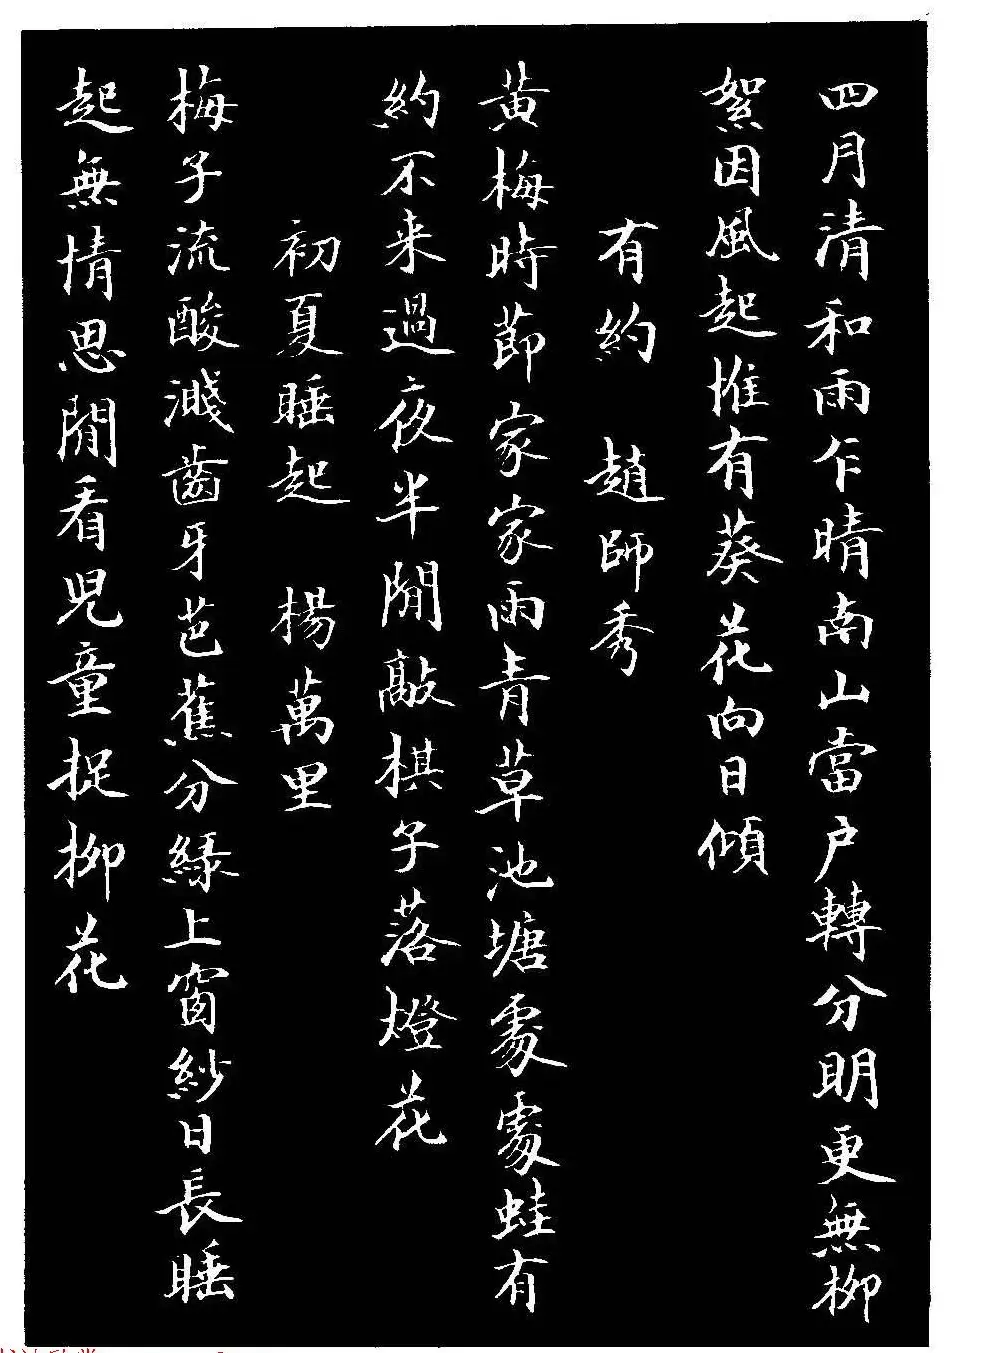 四月清和雨乍晴南山當户轉分明更無柳
絮因風起惟有葵花向日傾
有約 趙師秀
黄梅時節家家雨青草池塘處處蛙有
約不来過夜半閒敲棋子落燈花
初夏睡起 楊萬里
梅子流酸濺齒牙芭蕉分緑上窗紗日長睡
起無情思閒看兒童捉柳花